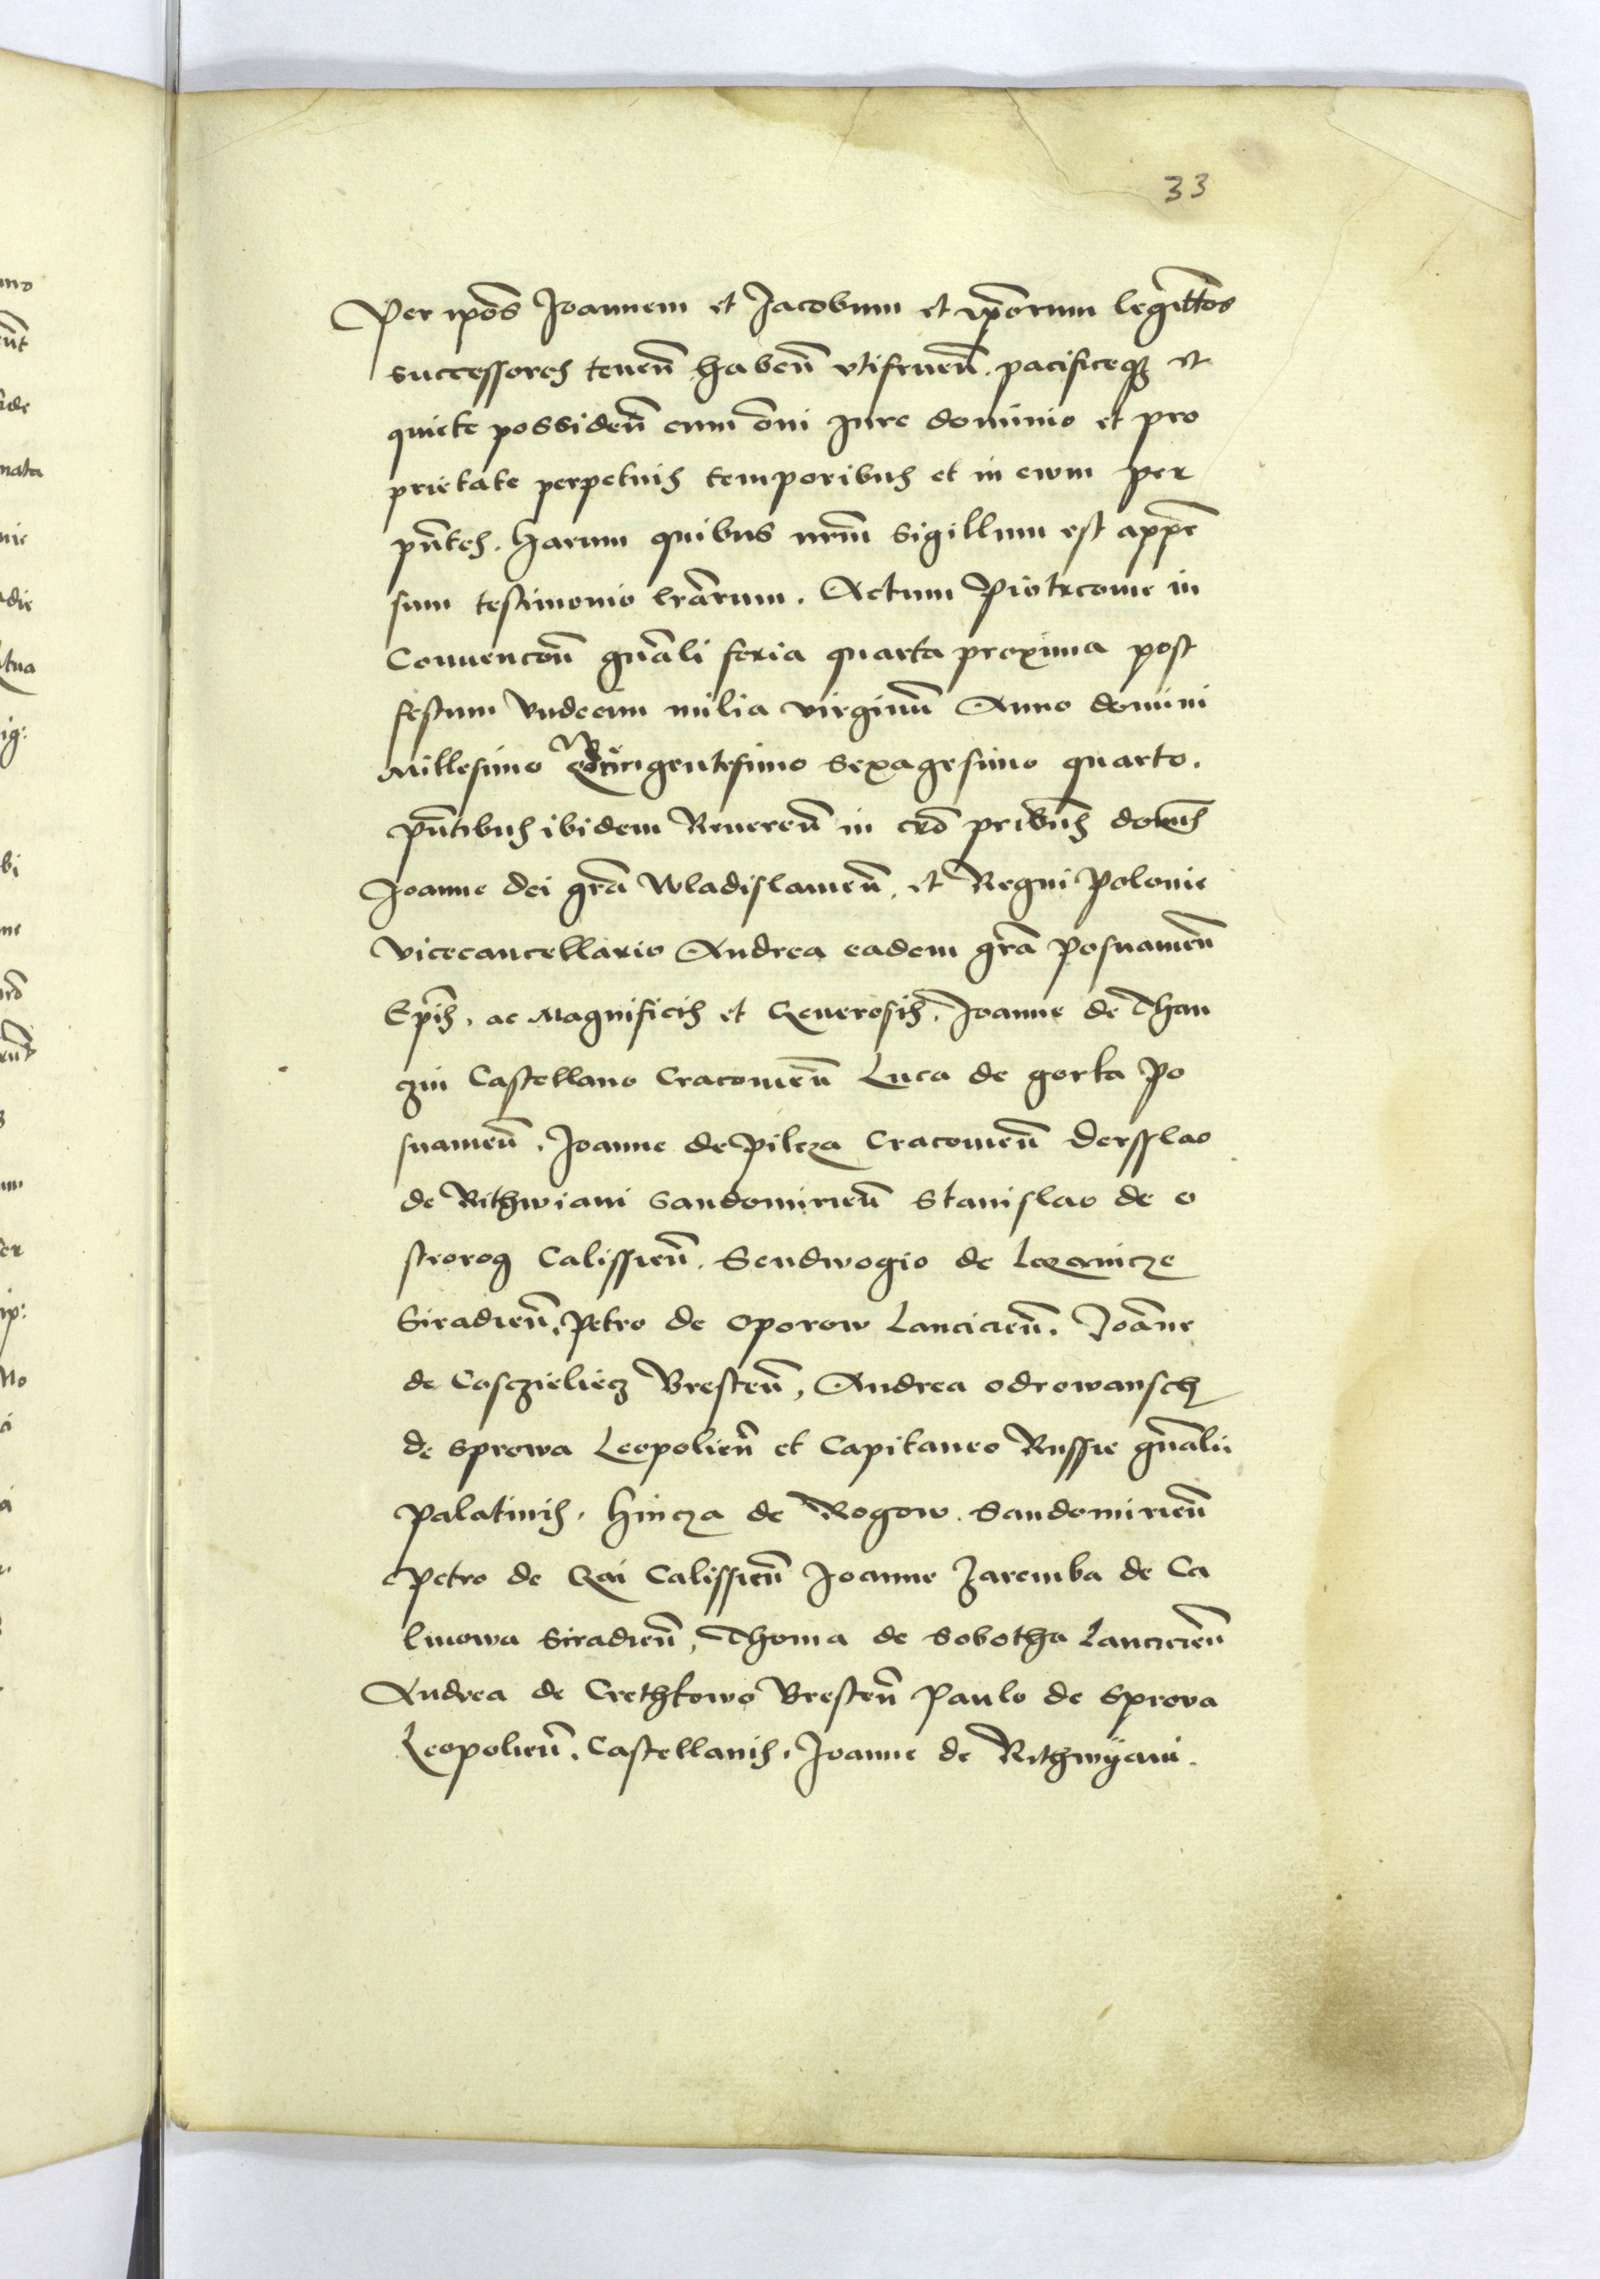 33
Per ip̄os Joannem et Jacobum et ip̄orum legittīos
successores tenen̄ haben̄ vtifruen̄. pacificeqꝫ et
quiete possiden̄ cum om̄i Jure dominio et pro
prietate perpetuis temporibus et in ewm per
pn̄tes. harum quibus nrm̄ Sigillum est appē
sum testimonio lrārum. Actum Piotrcouie in
Conuencōn gn̄ali feria quarta proxima post
festum Vndecim milia virginū Anno domini
Millesimo Quadringentesimo Sexagesimo quarto.
pn̄tibus ibidem Reueren̄ in xrō pribus domīs
Joanne dei gr̄a Wladislauien̄. et Regni Polonie
vicecancellario Andrea eadem gr̄a Posnanien̄
Ep̄is. ac Magnificis et Generosis. Joanne de Than
czin Castellano Cracouien̄ Luca de gorka Po
snanien̄. Joanne de Pilcza Cracouien̄ Dersslao
de Rithwiani Sandomirien̄ Stanislao de o
strorog Calissien̄. Sendwogio de
Siradien̄. Petro de oporow Lancicien̄. Joān̄e
de Cosczieliecz Bresten̄, Andrea odrowansch
de sprowa Leopolien̄ et Capitaneo Russie gn̄alii
palatinis. hincza de Rogow. Sandomirien̄
Petro de Gai Calissien̄ Joanne Zaremba de Ca
linowa Siradien̄, Thoma de Sobotha Lancicien̄
Andrea de Crethkowo Bresten̄ Paulo de Sprova
Leopolien̄. Castellanis. Joanne de Rithwÿani.